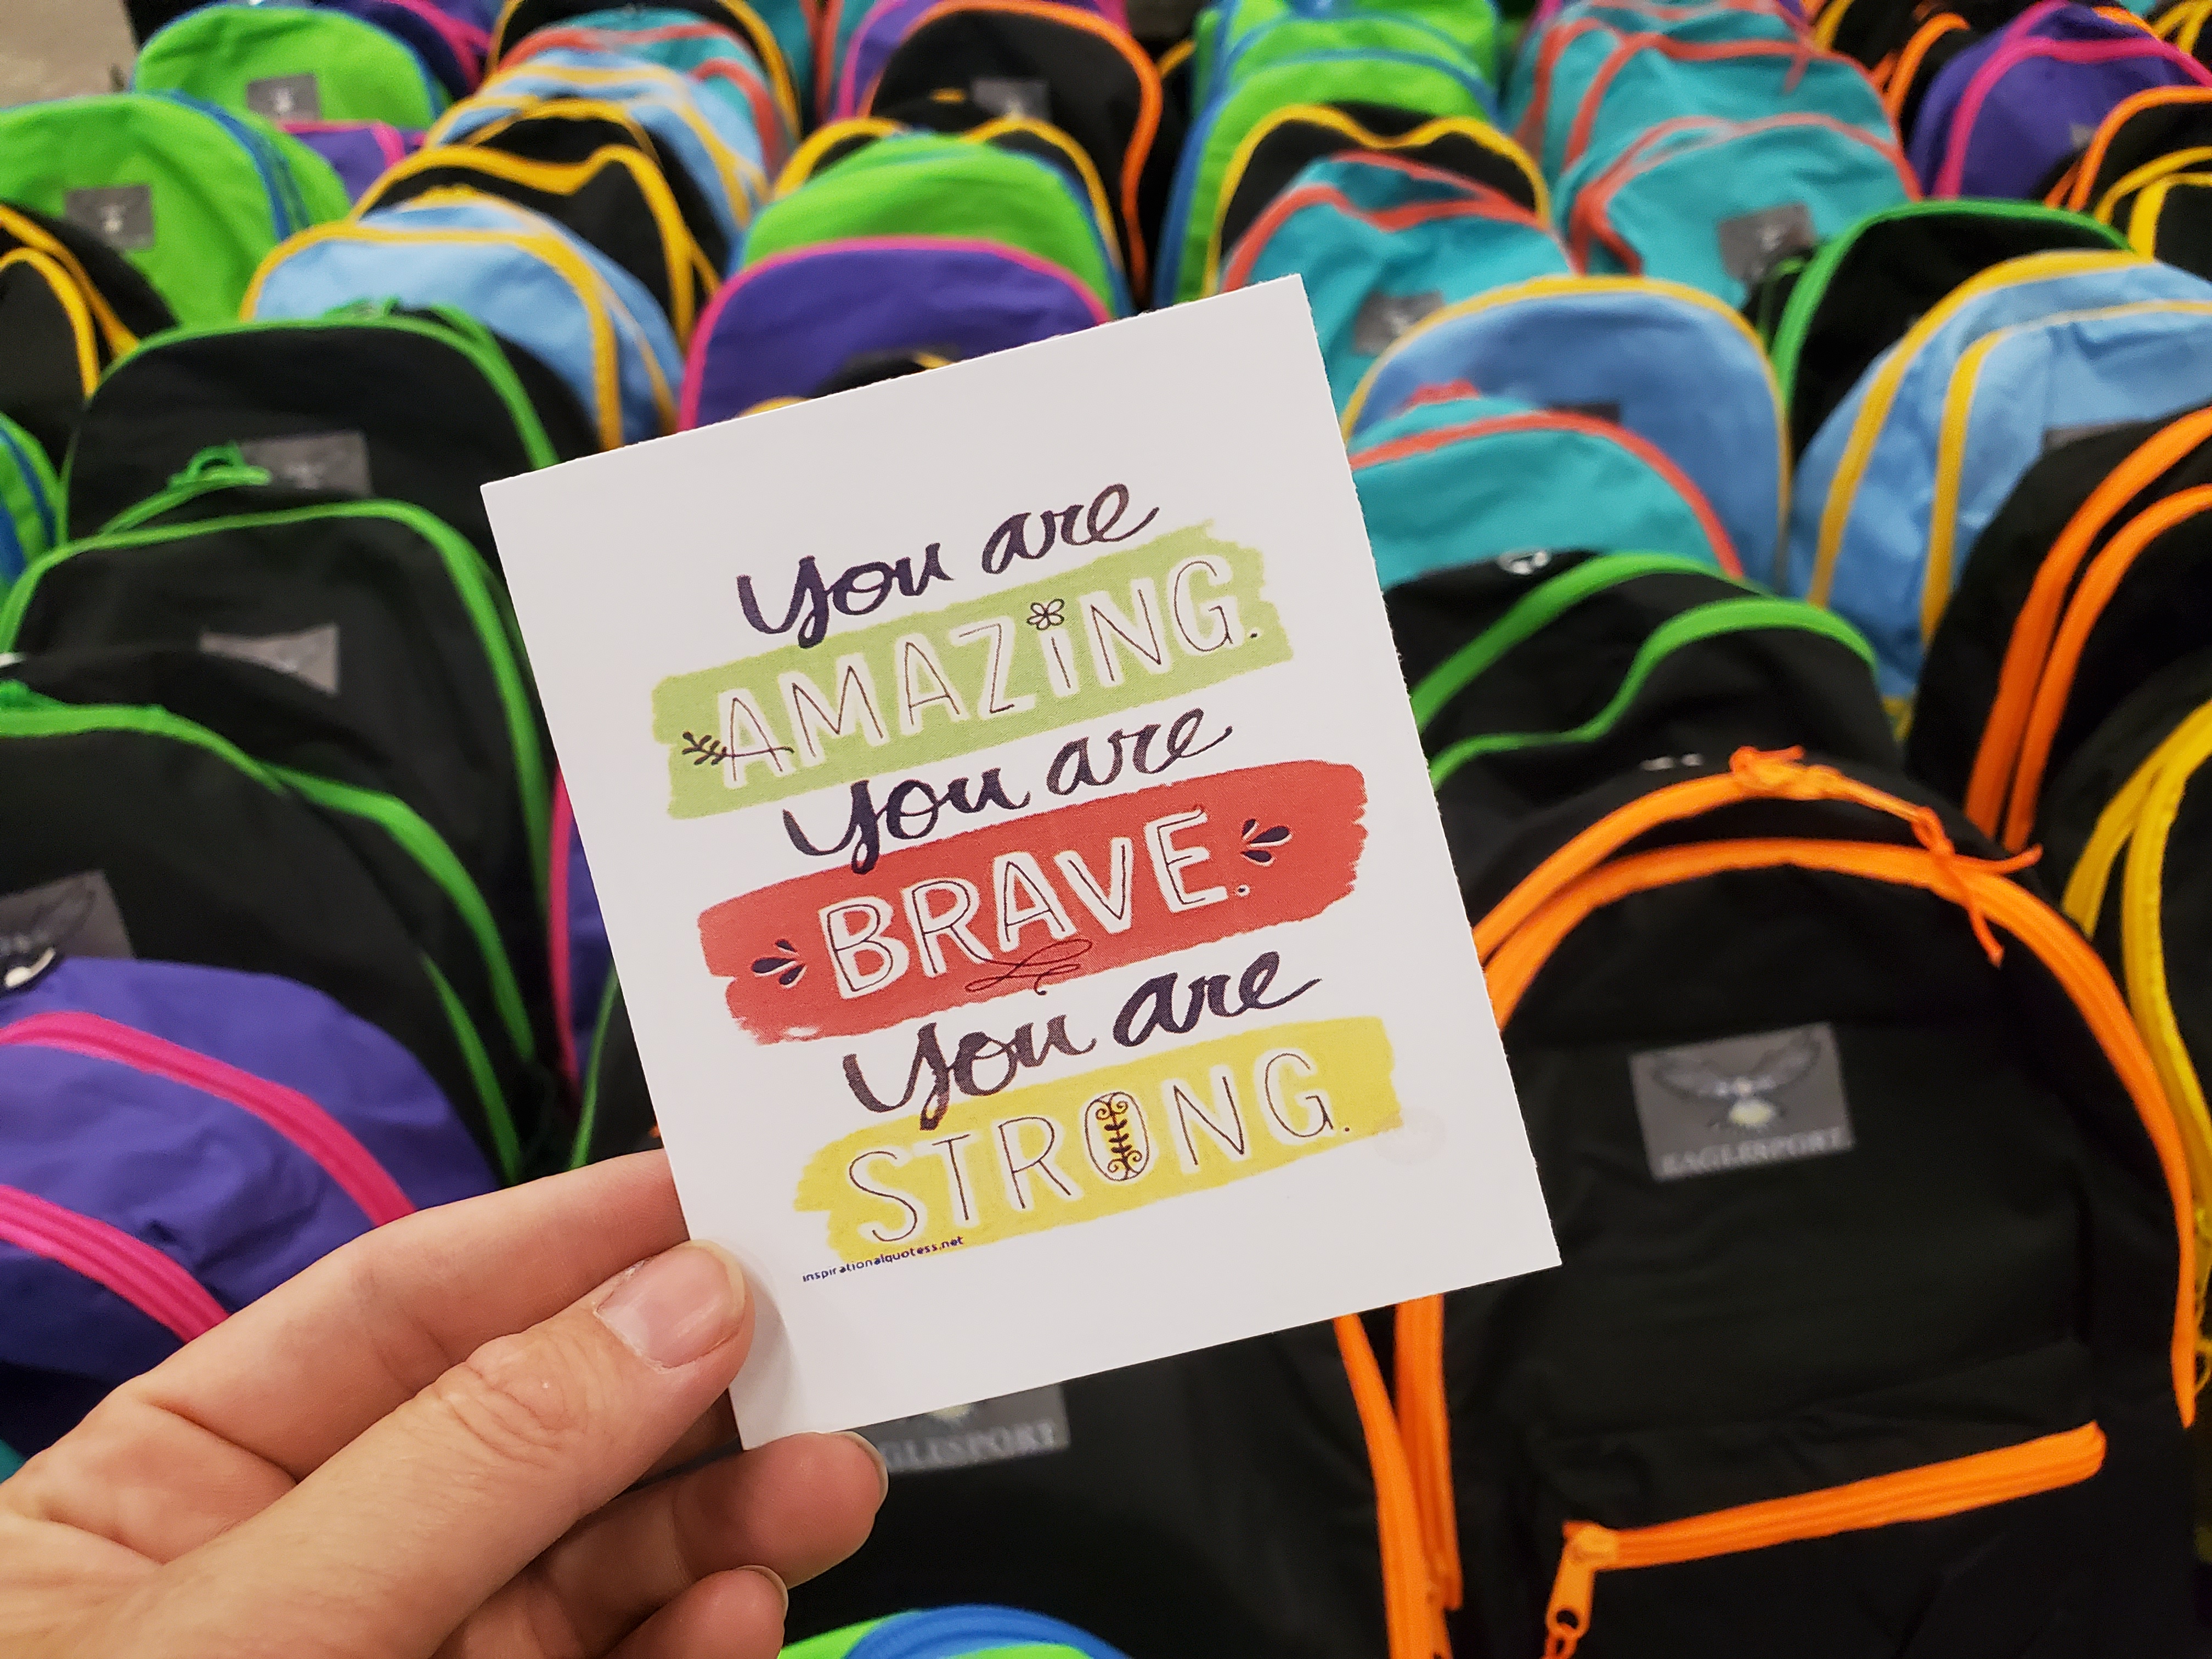 You are
AMAZiNG.
You are
BRAVE.
You are
STRONG.
inspirationalquotess.net
EAGLESPORT
GLESPORT